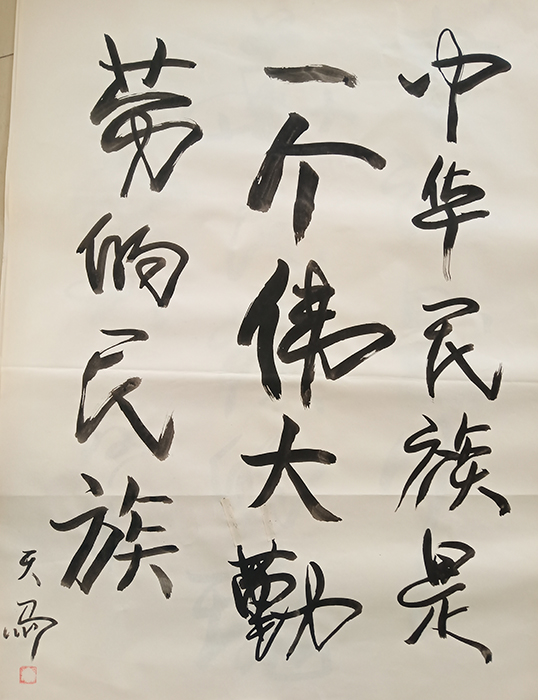 中华民族是
一个伟大勤
劳的民族
天马